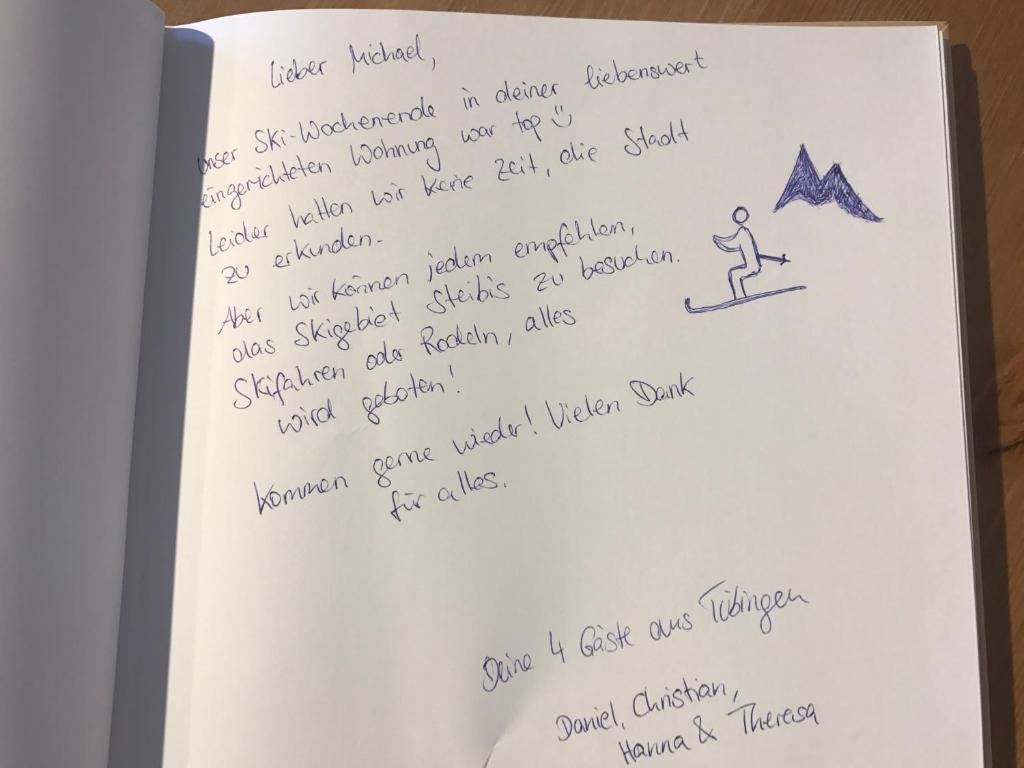 Lieber Michael,
unser Ski-Wochenende in deiner liebenswert
eingerichteten Wohnung war top :)
Leider hatten wir keine Zeit, die Stadt
zu erkunden.
Aber wir können jedem empfehlen,
das Skigebiet Steibis zu besuchen.
Skifahren oder Rodeln, alles
wird geboten!
Kommen gerne wieder! Vielen Dank
für alles.
Deine 4 Gäste aus Tübingen
Daniel, Christian,
Hanna & Theresa